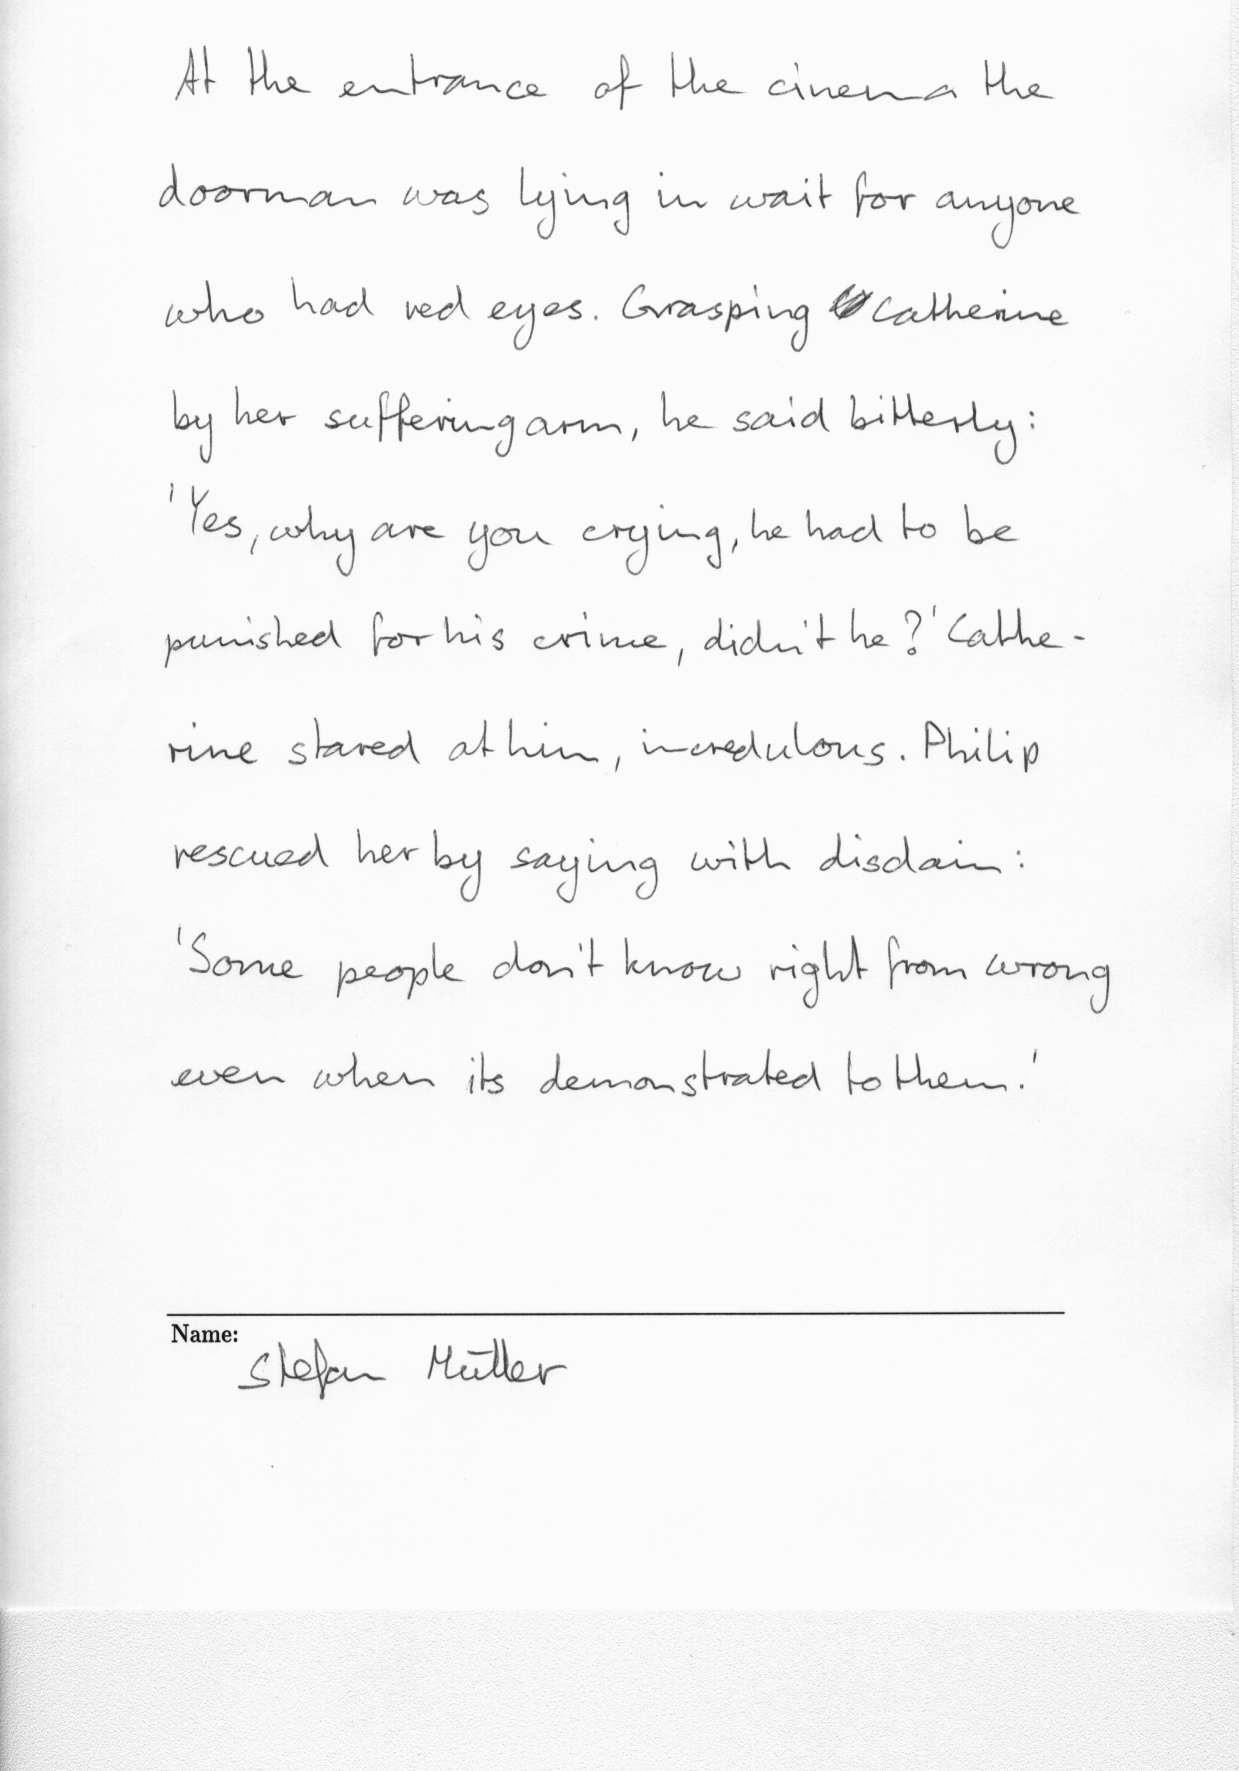 At the entrance of the cinema the
doorman was lying in wait for anyone
who had red eyes. Grasping Catherine
by her suffering arm, he said bitterly:
'Yes, why are you crying, he had to be
punished for his crime, didn't he?' Cathe-
rine stared at him, incredulous. Philip
rescued her by saying with disdain:
'Some people don't know right from wrong
even when its demonstrated to them.'
Name:
Stefan Müller